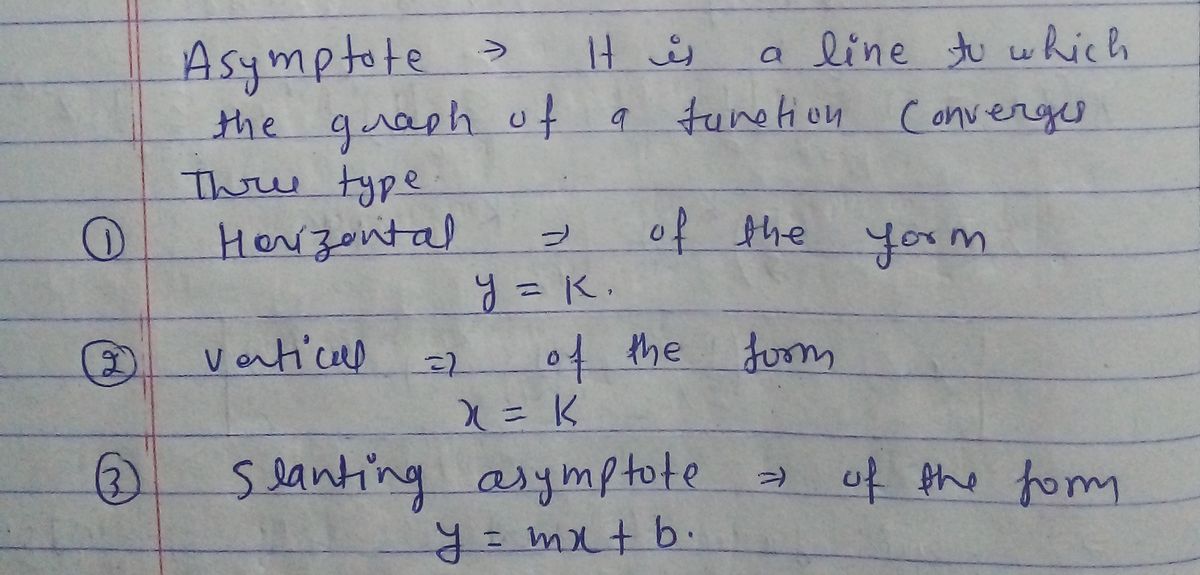 Asymptote ⇒ It is a line to which
the graph of a function converges
Three type
① Horizontal ⇒ of the form
y = K.
② Vertical ⇒ of the form
x = K
③ Slanting asymptote ⇒ of the form
y = mx + b.